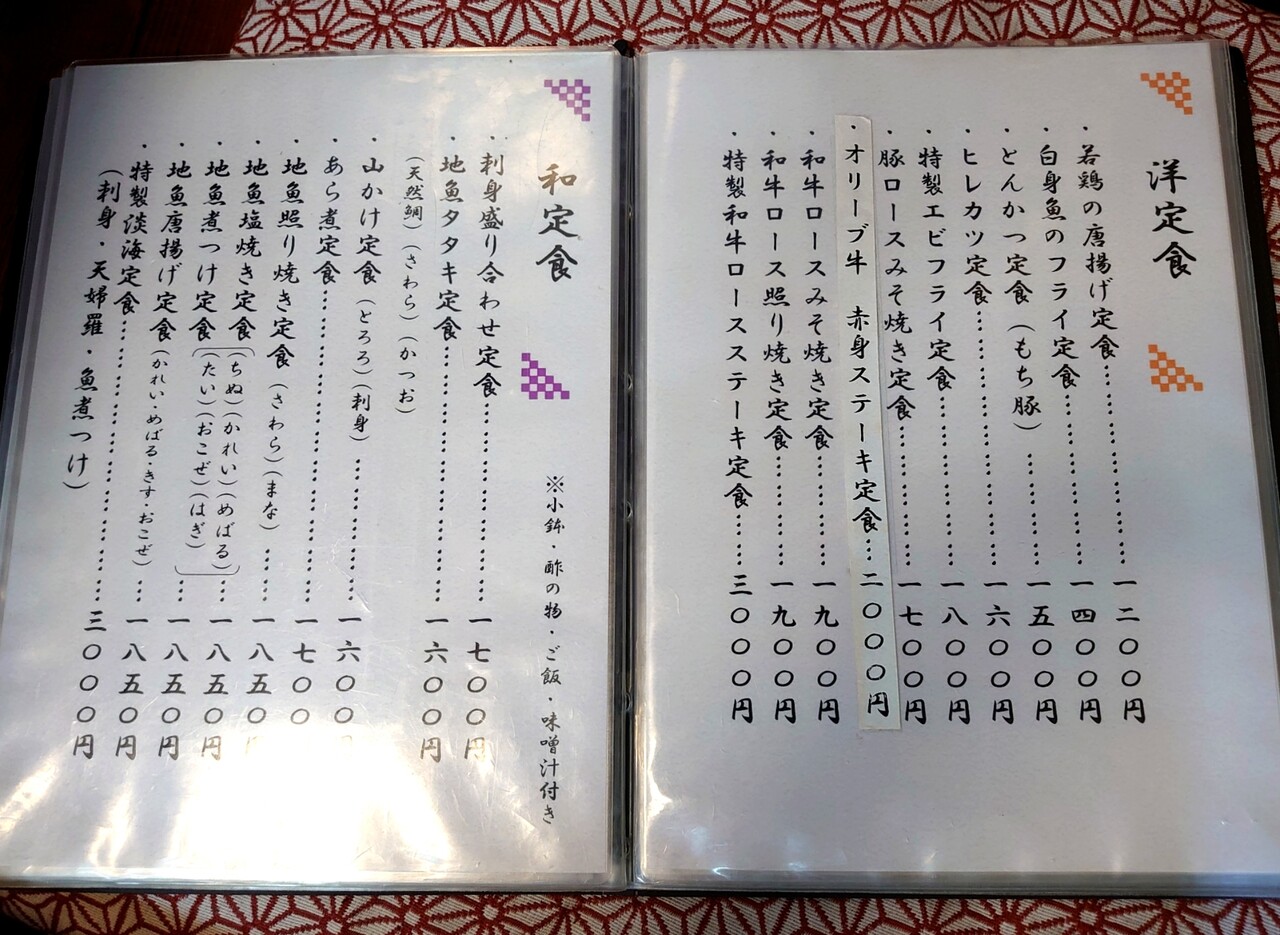 洋定食
・若鶏の唐揚げ定食……………………一二〇〇円
・白身魚のフライ定食…………………一四〇〇円
・とんかつ定食（もち豚）……………一五〇〇円
・ヒレカツ定食…………………………一六〇〇円
・特製エビフライ定食…………………一八〇〇円
・豚ロースみそ焼き定食………………一七〇〇円
・オリーブ牛　赤身ステーキ定食…二〇〇〇円
・和牛ロースみそ焼き定食……………一九〇〇円
・和牛ロース照り焼き定食……………一九〇〇円
・特製和牛ロースステーキ定食………三〇〇〇円
和定食
※小鉢・酢の物・ご飯・味噌汁付き
・刺身盛り合わせ定食…………………一七〇〇円
・地魚タタキ定食………………………一六〇〇円
（天然鯛）（さわら）（かつお）
・山かけ定食（とろろ）（刺身）………一六〇〇
・あら煮定食……………………………一七〇〇
・地魚照り焼き定食（さわら）（まな）…一八五〇
・地魚塩焼き定食（ちぬ）（かれい）（めばる）…一八五〇円
・地魚煮つけ定食（たい）（おこぜ）（はぎ）…一八五〇円
・地魚唐揚げ定食（かれい・めばる・きす・おこぜ）…一八五〇円
・特製淡海定食…………………………三〇〇〇円
（刺身・天婦羅・魚煮つけ）